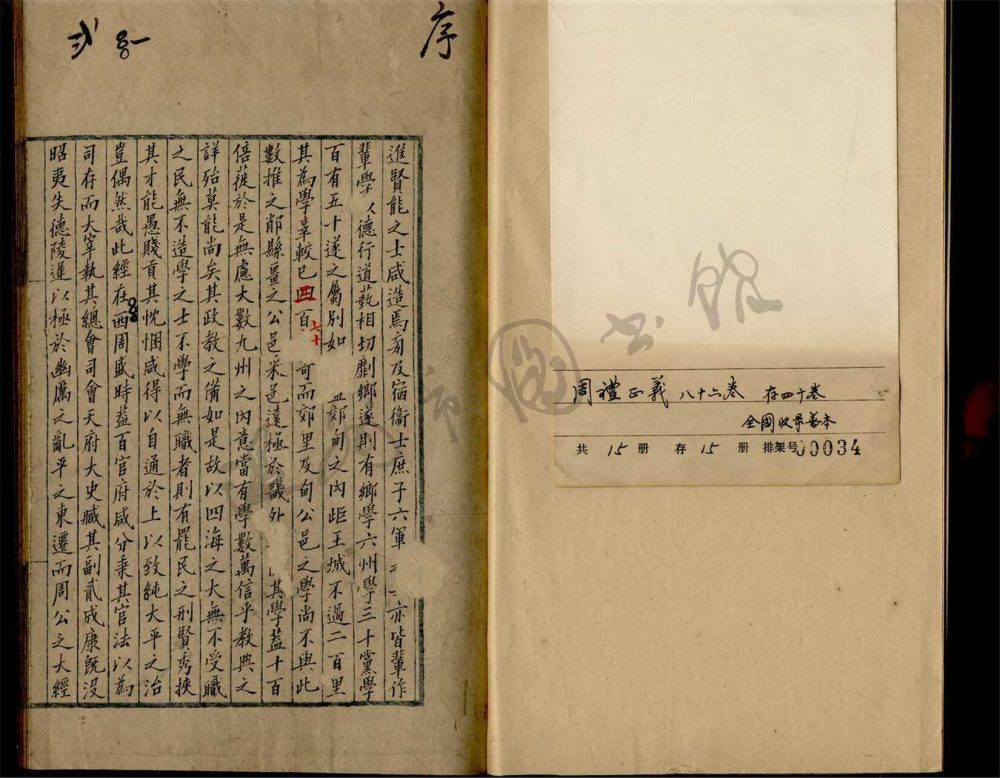 序
進賢能之士咸造焉旁及宿衞士庶子六軍 亦皆輩作
輩學以德行道藝相切劘鄉遂則有鄉學六州學三十黨學
百有五十遂之屬別如 郊甸之內距王城不過二百里
其為學辜較已四百 七十 可而郊里及甸公邑之學尚不與此
數推之削縣畺之公邑采邑遠極於畿外 其學蓋十百
倍蓰於是無慮大數九州之內意當有學數萬信乎教典之
詳殆莫能尚矣其政教之備如是故以四海之大無不受職
之民無不造學之士不學而無職者則有罷民之刑賢秀挾
其才能愚賤貢其忱悃咸得以自通於上以致純大平之治
豈偶然哉此經在西周盛時蓋百官府咸分秉其官法以為
司存而大宰執其總會司會天府大史臧其副貳成康旣沒
昭夷失德陵遲以極於幽厲之亂平之東遷而周公之大經
周禮正義 八十六卷 存四十卷
全國收录善本
共 15 册 存 15 册 排架号00034
市圖书館